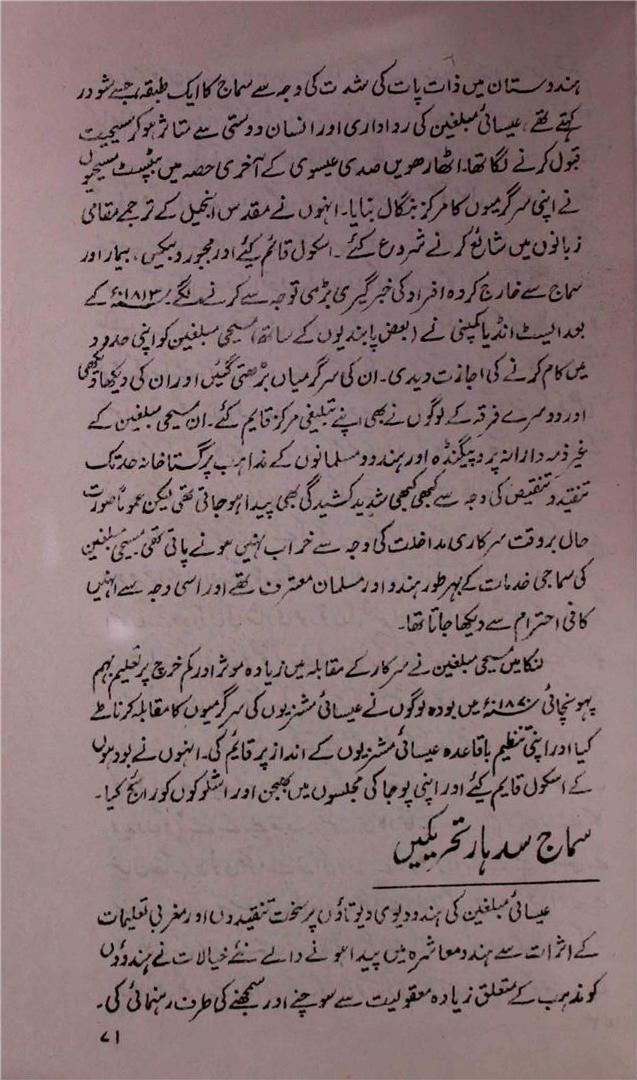 ہندوستان میں ذات پات کی شدت کی وجہ سے سماج کا ایک طبقہ، جسے شودر
کہتے تھے، عیسائی مبلغین کی رواداری اور انسان دوستی سے متاثر ہو کر مسیحیت
قبول کرنے لگا تھا۔ اٹھارھویں صدی عیسوی کے آخری حصہ میں بپٹسٹ مسیحیوں
نے اپنی سرگرمیوں کا مرکز بنگال بنایا۔ انہوں نے مقدس انجیل کے ترجمے مقامی
زبانوں میں شائع کرنے شروع کئے۔ اسکول قائم کیئے اور مجبور و بیکس، بیمار اور
سماج سے خارج کردہ افراد کی خبر گیری بڑی توجہ سے کرنے لگے۔ ۱۸۱۳ء کے
بعد ایسٹ انڈیا کمپنی نے (بعض پابندیوں کے ساتھ) مسیحی مبلغین کو اپنی حدود
میں کام کرنے کی اجازت دیدی۔ ان کی سرگرمیاں بڑھتی گئیں اور ان کی دیکھا دیکھی
اور دوسرے فرقہ کے لوگوں نے بھی اپنے تبلیغی مرکز قایم کئے۔ ان مسیحی مبلغین کے
غیر ذمہ دارانہ پروپیگنڈہ اور ہندو و مسلمانوں کے مذاہب پر گستاخانہ حد تک
تنقید و تنقیص کی وجہ سے کبھی کبھی شدید کشیدگی بھی پیدا ہو جاتی تھی لیکن عموماً صورت
حال بر وقت سرکاری مداخلت کی وجہ سے خراب نہیں ہونے پاتی تھی۔ مسیحی مبلغین
کی سماجی خدمات کے بہر طور ہندو اور مسلمان معترف تھے اور اسی وجہ سے انہیں
کافی احترام سے دیکھا جاتا تھا۔
لنکا میں مسیحی مبلغین نے سرکار کے مقابلہ میں زیادہ موثر اور کم خرچ پر تعلیم بہم
پہونچائی ۱۸۷۰ء میں بودھ لوگوں نے عیسائی مشنریوں کی سرگرمیوں کا مقابلہ کرنا طے
کیا اور اپنی تنظیم باقاعدہ عیسائی مشنریوں کے انداز پر قائم کی۔ انہوں نے بودھوں
کے اسکول قایم کیئے اور اپنی پوجا کی مجلسوں میں بھجن اور اشلوکوں کو رائج کیا۔
سماج سدہار تحریکیں
عیسائی مبلغین کی ہندو دیوی دیوتاؤں پر سخت تنقیدوں اور مغربی تعلیمات
کے اثرات سے ہندو معاشرہ میں پیدا ہونے والے نئے خیالات نے ہندوؤں
کو مذہب کے متعلق زیادہ معقولیت سے سوچنے اور سمجھنے کی طرف رہنمائی کی۔
۷۱